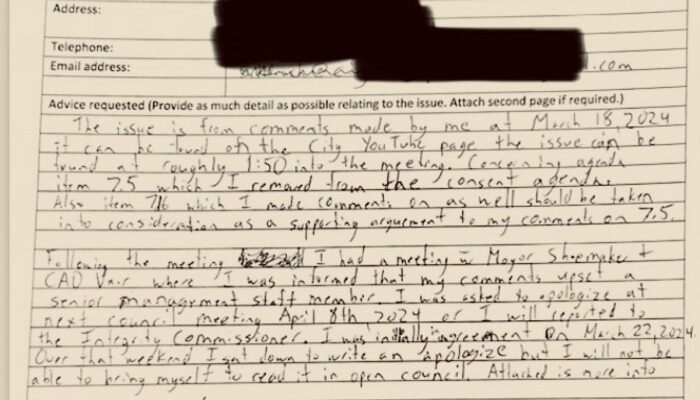 Address:
Telephone:
Email address: .com
Advice requested (Provide as much detail as possible relating to the issue. Attach second page if required.)
The issue is from comments made by me at March 18, 2024
it can be found on the City YouTube page the issue can be
found at roughly 1:50 into the meeting. Concerning agenda
item 7.5 which I removed from the consent agenda.
Also item 7.6 which I made comments on as well should be taken
into consideration as a supporting arguement to my comments on 7.5.
Following the meeting I had a meeting w Mayor Shoemaker +
CAO Vair where I was informed that my comments upset a
senior management staff member. I was asked to apologize at
next council meeting April 8th, 2024 or I will reported to
the Integrity Commissioner. I was initially in agreement on March 22, 2024.
Over that weekend I sat down to write an apologize but I will not be
able to bring myself to read it in open council. Attached is more info